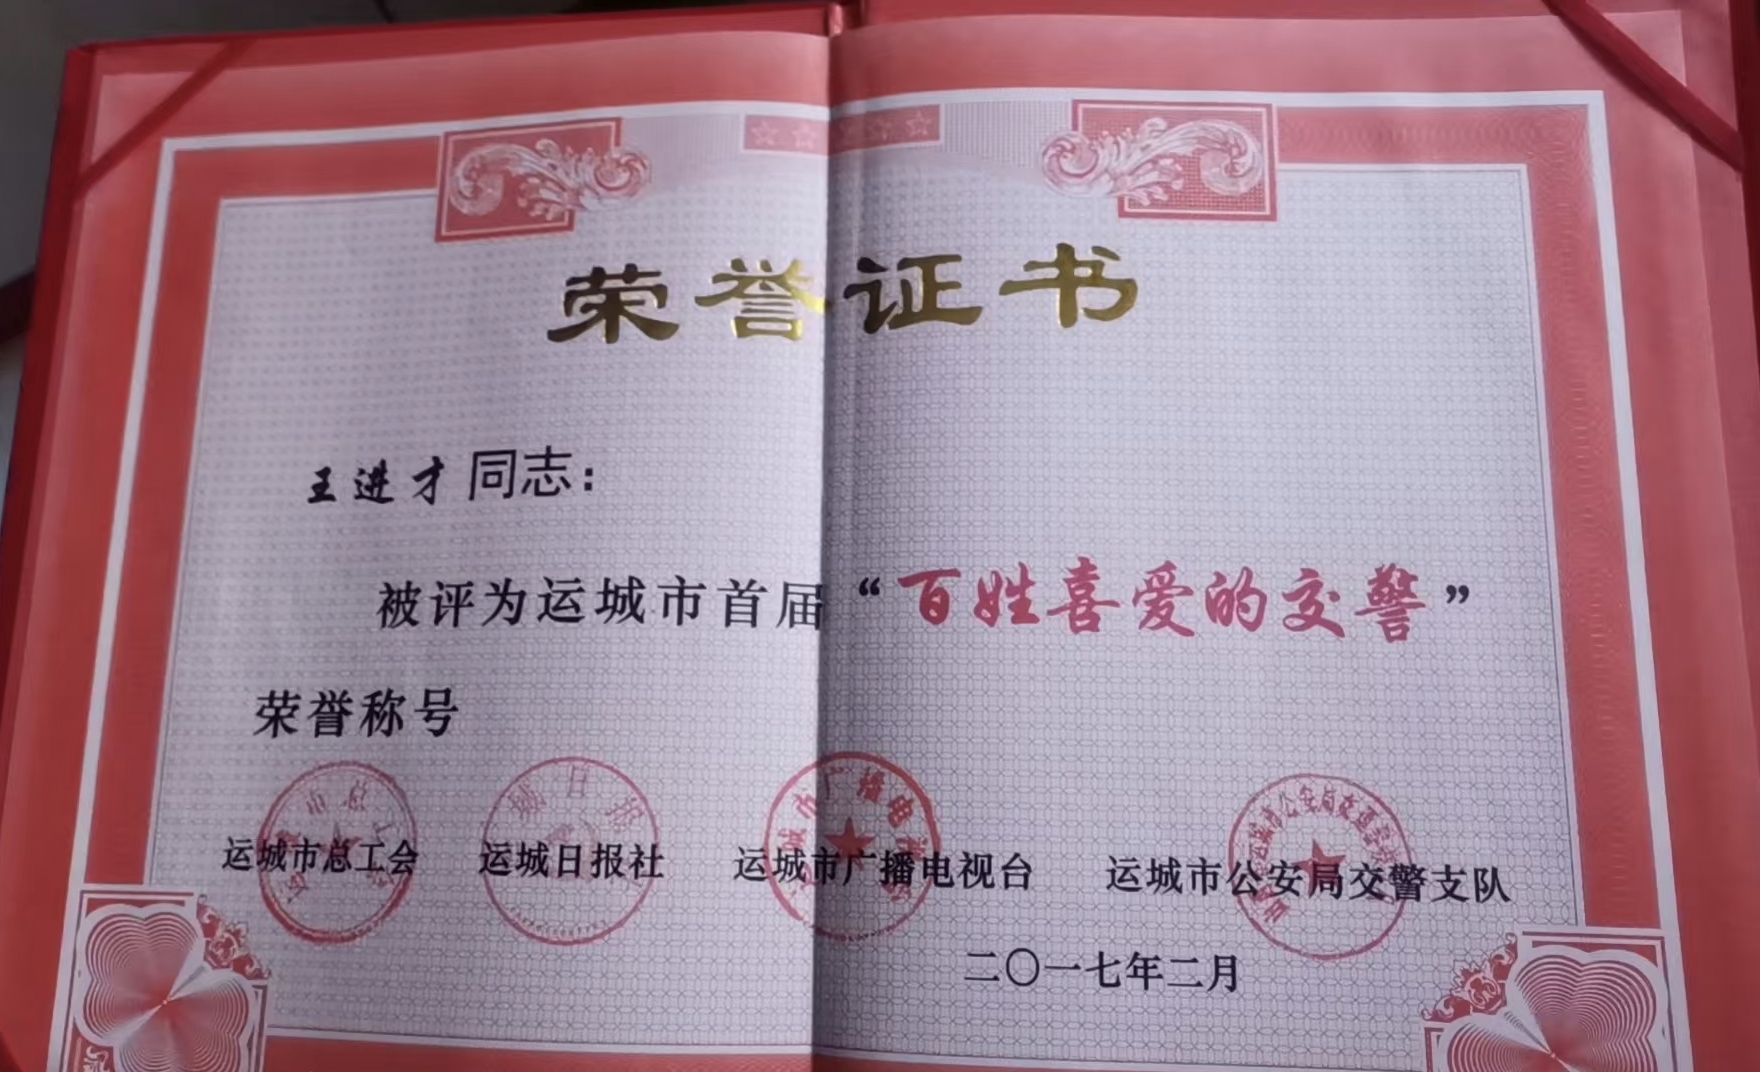 荣誉证书
王进才同志：
被评为运城市首届“百姓喜爱的交警”
荣誉称号
运城市总工会 运城日报社 运城市广播电视台 运城市公安局交警支队
二〇一七年二月